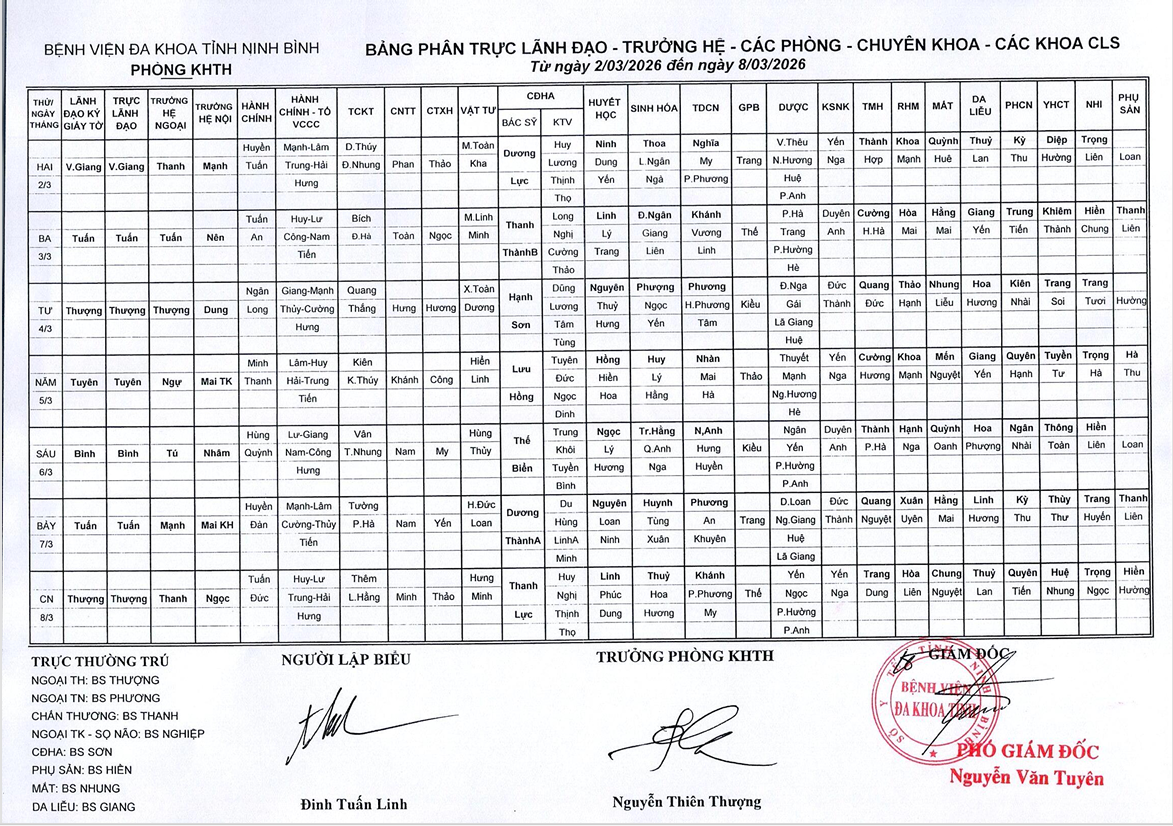 BỆNH VIỆN ĐA KHOA TỈNH NINH BÌNH
PHÒNG KHTH
BẢNG PHÂN TRỰC LÃNH ĐẠO - TRƯỞNG HỆ - CÁC PHÒNG - CHUYÊN KHOA - CÁC KHOA CLS
Từ ngày 2/03/2026 đến ngày 8/03/2026
THỨ/ NGÀY THÁNG | LÃNH ĐẠO KÝ GIẤY TỜ | TRỰC LÃNH ĐẠO | TRƯỞNG HỆ NGOẠI | TRƯỞNG HỆ NỘI | HÀNH CHÍNH | HÀNH CHÍNH - TỔ VCCC | TCKT | CNTT | CTXH | VẬT TƯ | CĐHA | HUYẾT HỌC | SINH HÓA | TDCN | GPB | DƯỢC | KSNK | TMH | RHM | MẮT | DA LIỄU | PHCN | YHCT | NHI | PHỤ SẢN
BÁC SỸ | KTV
Huyền | Mạnh-Lâm | D.Thúy | M.Toàn | Dương | Huy | Ninh | Thoa | Nghĩa | V.Thêu | Yến | Thành | Khoa | Quỳnh | Thuỷ | Kỳ | Diệp | Trọng
HAI | V.Giang | V.Giang | Thanh | Mạnh | Tuấn | Trung-Hải | Đ.Nhung | Phan | Thảo | Kha | Lương | Dung | L.Ngân | My | Trang | N.Hương | Nga | Hợp | Mạnh | Huê | Lan | Thu | Hường | Liên | Loan
2/3 | Hưng | Lực | Thịnh | Yến | Ngà | P.Phương | Huệ
Thọ | P.Anh
Tuấn | Huy-Lư | Bích | M.Linh | Thanh | Long | Linh | Đ.Ngân | Khánh | P.Hà | Duyên | Cường | Hòa | Hằng | Giang | Trung | Khiêm | Hiền | Thanh
BA | Tuấn | Tuấn | Tuấn | Nên | An | Công-Nam | Đ.Hà | Toàn | Ngọc | Minh | Nghị | Lý | Giang | Vương | Thế | Trang | Anh | H.Hà | Mai | Mai | Yến | Tiến | Thành | Chung | Liên
3/3 | Tiến | ThànhB | Cường | Trang | Liên | Linh | P.Hường
Thảo | Hè
Ngân | Giang-Mạnh | Quang | X.Toàn | Hạnh | Dũng | Nguyên | Phượng | Phương | Đ.Nga | Đức | Quang | Thảo | Nhung | Hoa | Kiên | Trang | Trang
TƯ | Thượng | Thượng | Thượng | Dung | Long | Thủy-Cường | Thắng | Hưng | Hương | Dương | Lương | Thuỷ | Ngọc | H.Phương | Kiều | Gái | Thành | Đức | Hạnh | Liễu | Hương | Nhài | Soi | Tươi | Hường
4/3 | Hưng | Sơn | Tâm | Hưng | Yến | Tâm | Lã Giang
Tùng | Huệ
Minh | Lâm-Huy | Kiên | Hiền | Lưu | Tuyên | Hồng | Huy | Nhàn | Thuyết | Yến | Cường | Khoa | Mến | Giang | Quyên | Tuyền | Trọng | Hà
NĂM | Tuyên | Tuyên | Ngự | Mai TK | Thanh | Hải-Trung | K.Thúy | Khánh | Công | Linh | Đức | Hiền | Lý | Mai | Thảo | Mạnh | Nga | Hương | Mạnh | Nguyệt | Yến | Hạnh | Tư | Hà | Thu
5/3 | Tiến | Hồng | Ngọc | Hoa | Hằng | Hà | Ng.Hương
Dinh | Hè
Hùng | Lư-Giang | Vân | Hùng | Thế | Trung | Ngọc | Tr.Hằng | N,Anh | Ngân | Duyên | Thành | Hạnh | Quỳnh | Hoa | Ngân | Thông | Hiền
SÁU | Bình | Bình | Tú | Nhâm | Quỳnh | Nam-Công | T.Nhung | Nam | My | Thủy | Khôi | Lý | Q.Anh | Hưng | Kiều | Yến | Anh | P.Hà | Nga | Oanh | Phượng | Nhài | Toàn | Liên | Loan
6/3 | Hưng | Biển | Tuyền | Hương | Nga | Huyền | P.Hường
Bình | P.Anh
Huyền | Mạnh-Lâm | Tường | H.Đức | Dương | Du | Nguyên | Huynh | Phương | D.Loan | Đức | Quang | Xuân | Hằng | Linh | Kỳ | Thùy | Trang | Thanh
BẢY | Tuấn | Tuấn | Mạnh | Mai KH | Đàn | Cường-Thủy | P.Hà | Nam | Yến | Loan | Hùng | Loan | Tùng | An | Trang | Ng.Giang | Thành | Nguyệt | Uyên | Mai | Hương | Thu | Thư | Huyến | Liên
7/3 | Tiến | ThànhA | LinhA | Ninh | Xuân | Khuyên | Huệ
Minh | Lã Giang
Tuấn | Huy-Lư | Thêm | Hưng | Thanh | Huy | Linh | Thuỷ | Khánh | Yến | Yến | Trang | Hòa | Chung | Thuỷ | Quyên | Huệ | Trọng | Hiền
CN | Thượng | Thượng | Thanh | Ngọc | Đức | Trung-Hải | L.Hằng | Minh | Thảo | Minh | Nghị | Phúc | Hoa | P.Phương | Thế | Ngọc | Nga | Dung | Liên | Nguyệt | Lan | Tiến | Nhung | Ngọc | Hường
8/3 | Hưng | Lực | Thịnh | Dung | Hương | My | P.Hường
Thọ | P.Anh
TRỰC THƯỜNG TRÚ
NGOẠI TH: BS THƯỢNG
NGOẠI TN: BS PHƯƠNG
CHẤN THƯƠNG: BS THANH
NGOẠI TK - SỌ NÃO: BS NGHIỆP
CĐHA: BS SƠN
PHỤ SẢN: BS HIÊN
MẮT: BS NHUNG
DA LIỄU: BS GIANG
NGƯỜI LẬP BIỂU
Đinh Tuấn Linh
TRƯỞNG PHÒNG KHTH
Nguyễn Thiên Thượng
GIÁM ĐỐC
SỞ Y TẾ TỈNH NINH BÌNH
BỆNH VIỆN
ĐA KHOA TỈNH
PHÓ GIÁM ĐỐC
Nguyễn Văn Tuyên